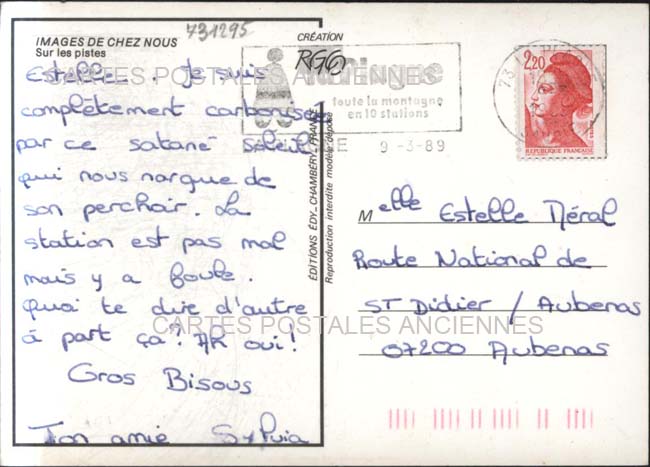 731295
IMAGES DE CHEZ NOUS
Sur les pistes
Estelle. Je suis
complètement carbonisée
par ce satané soleil
qui nous nargue de
son perchoir. La
station est pas mal
mais y a foule.
Quoi te dire d'autre
à part ça? AH oui!
Gros Bisous
Ton amie Sylvia
CARTES POSTALES ANCIENNES
CARTES POSTALES ANCIENNES
CRÉATION
ÉDITIONS EDY - CHAMBÉRY - FRANCE
Reproduction interdite modèle déposé
toute la montagne
en 10 stations
9-3-89
73
2,20
REPUBLIQUE FRANÇAISE
Melle Estelle Néral
Route National de
ST Didier / Aubenas
07200 Aubenas